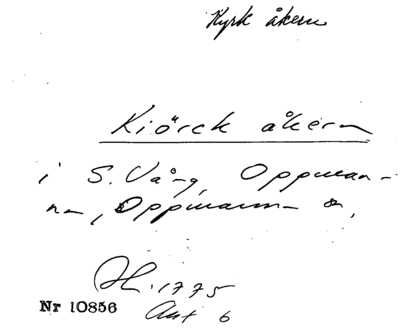 Kyrk åkern
Kiörck åkern
i S. Vång, Oppman-
na, Oppmanna
H. 1775
Nr 10856 Akt 6